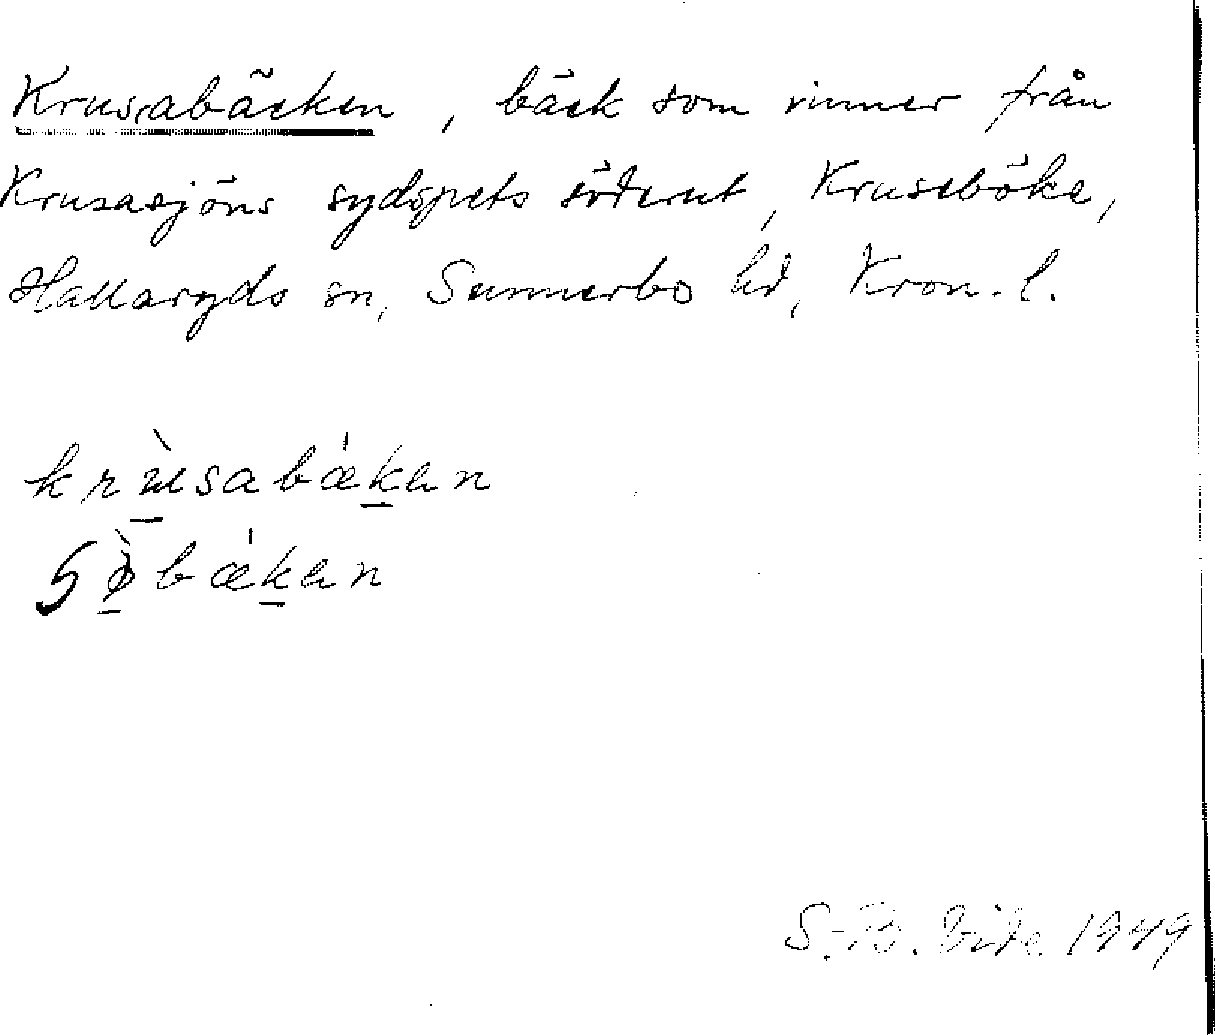 Krusabäcken, bäck som rinner från
Krusasjöns sydspets söderut, Kruseböke,
Hallaryds sn, Sunnerbo hd, Kron. l.
krùsabǽkan
sø̀bǽkan
S.-B. 1949